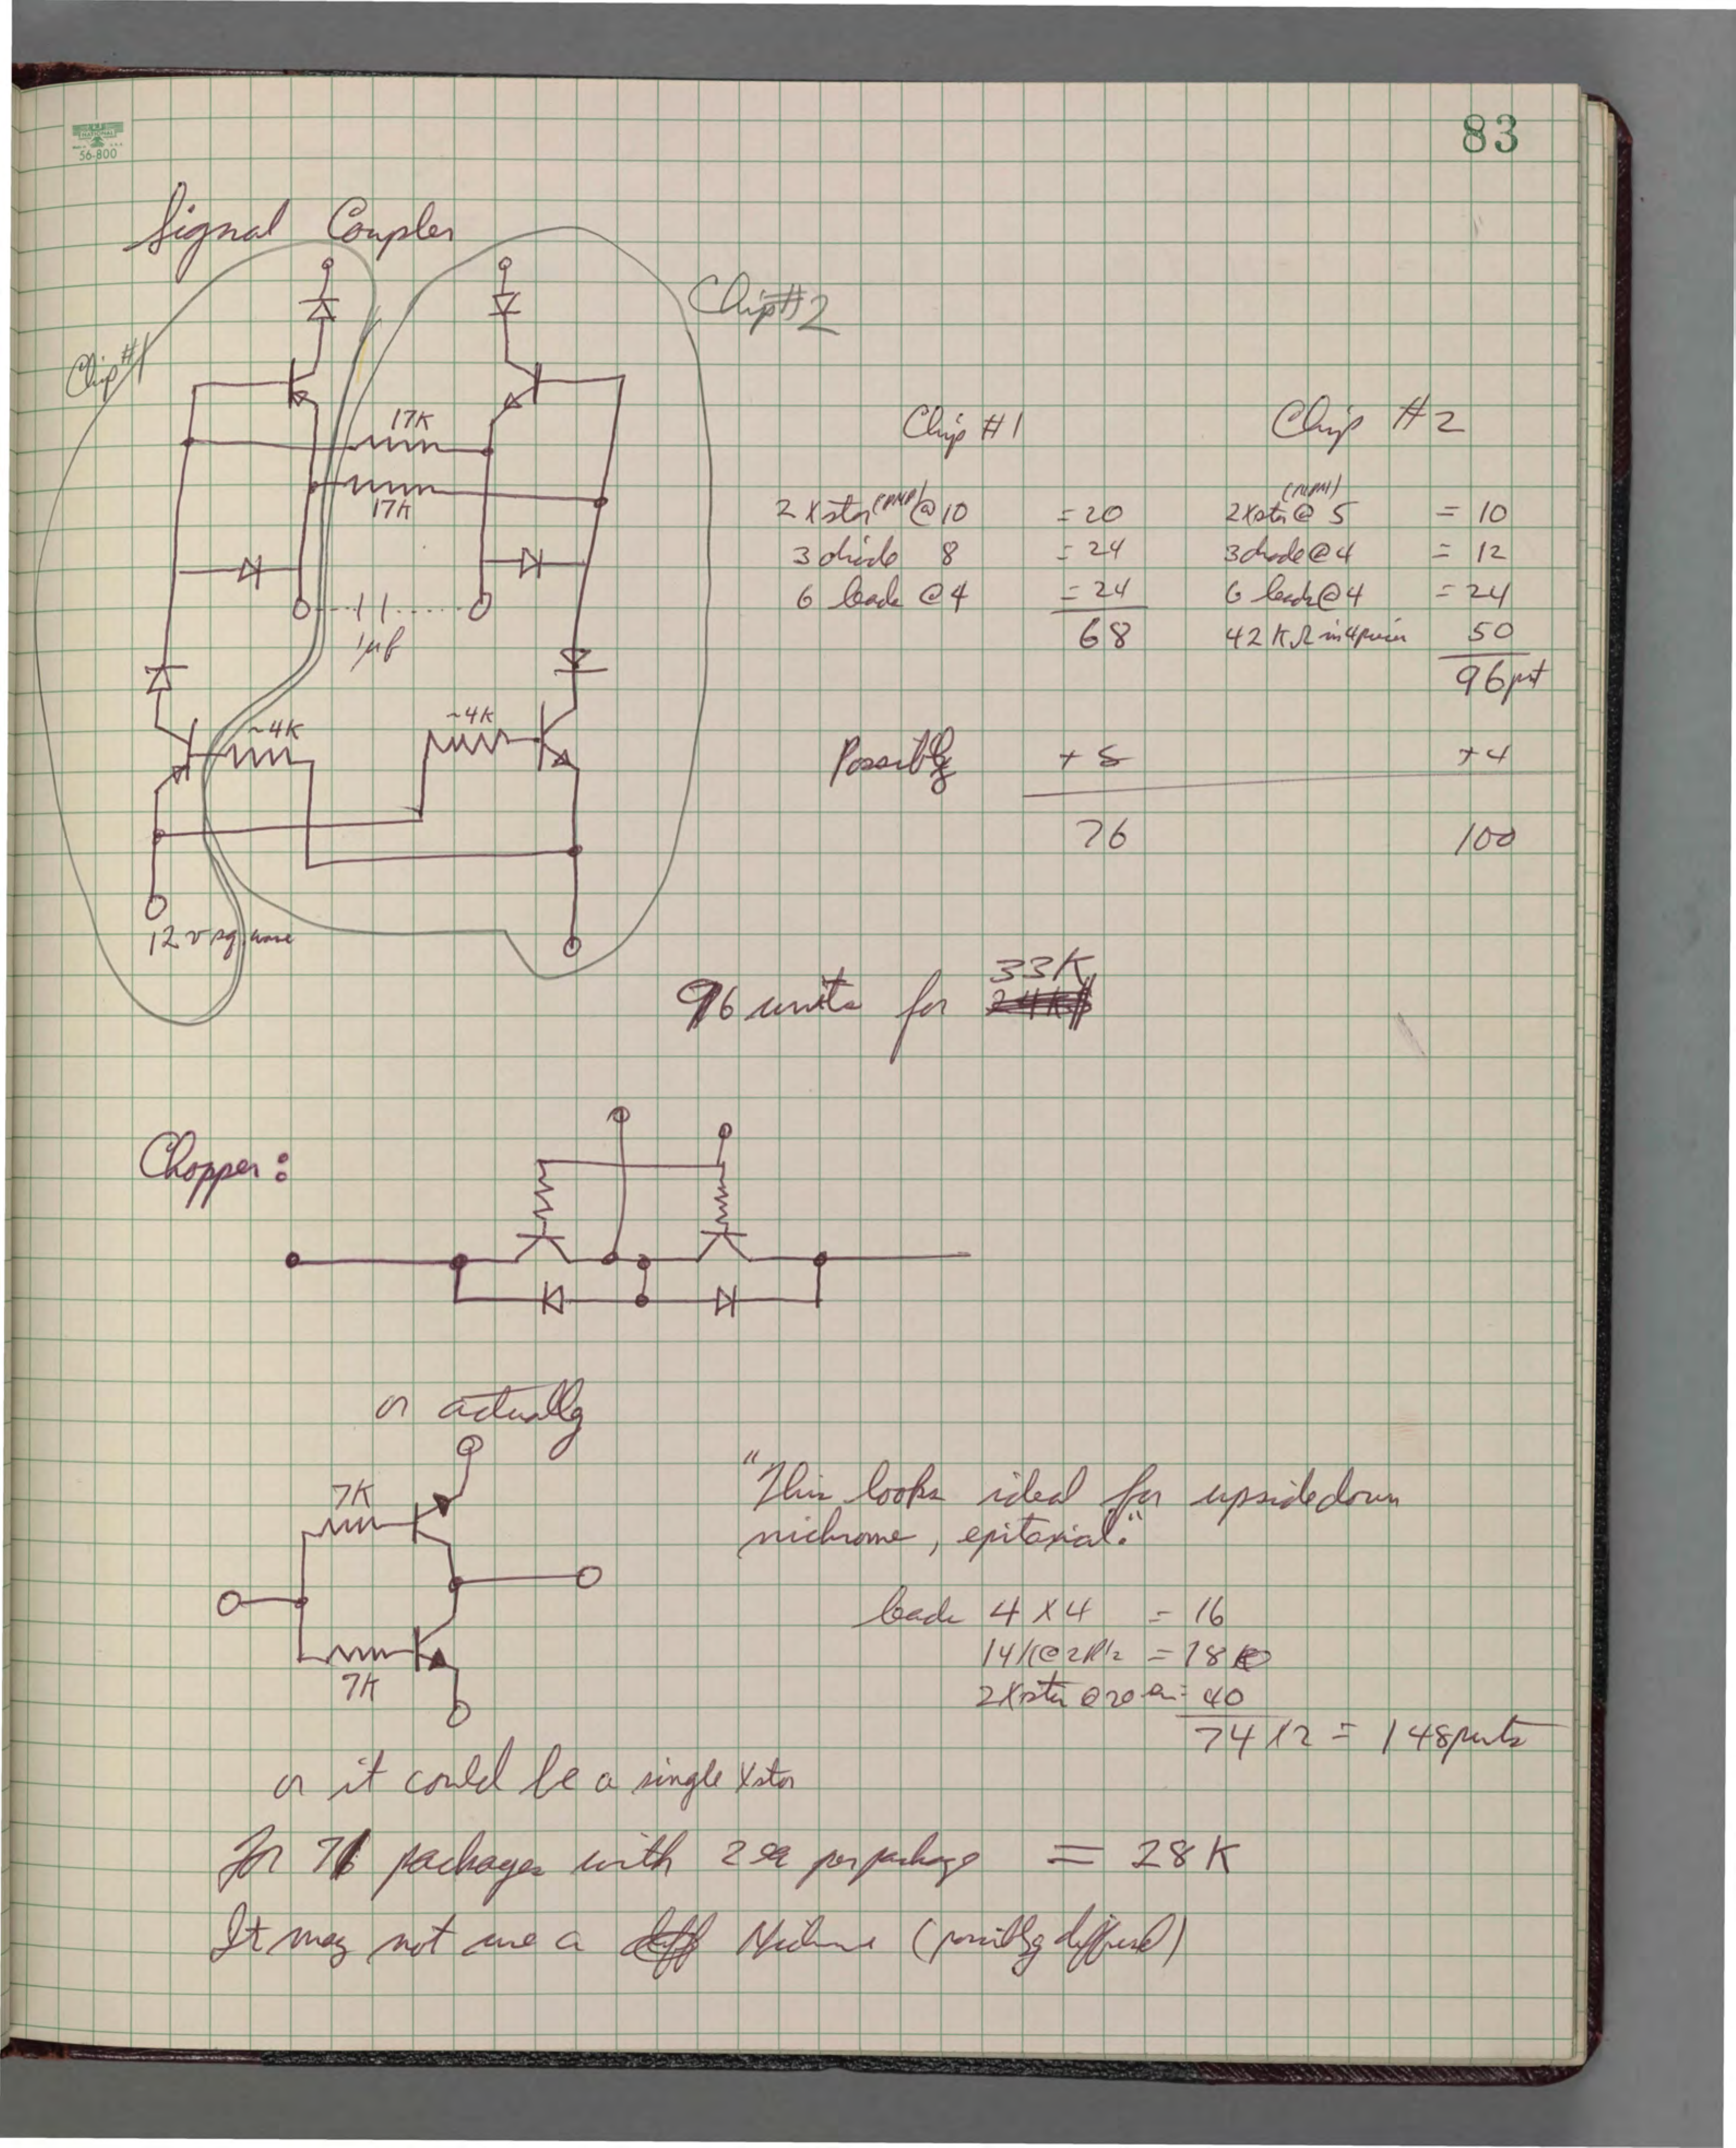 83
NATIONAL
56-800
Signal Coupler
Chip #1
Chip #2
17K
17K
1μf
~4K
~4K
12 v sq. wave
Chip #1 Chip #2
2 Xstor (PNP) @ 10 = 20 2 Xstr (NPN) @ 5 = 10
3 diode 8 = 24 3 diode @ 4 = 12
6 leads @ 4 = 24 6 leads @ 4 = 24
68 42 KΩ in 4 50
96
Possibly + 8 + 4
76 100
96 units for 33K
Chopper:
or actually
7K
7K
"This looks ideal for upsidedown
nichrome, epitaxial."
leads 4 X 4 = 16
14K @ = 18
2 Xstr @ 20 = 40
74 X 2 = 148
or it could be a single Xstor
For packages with 2 ea per package = 28 K
It may not use a Nichrome (possibly diffused)